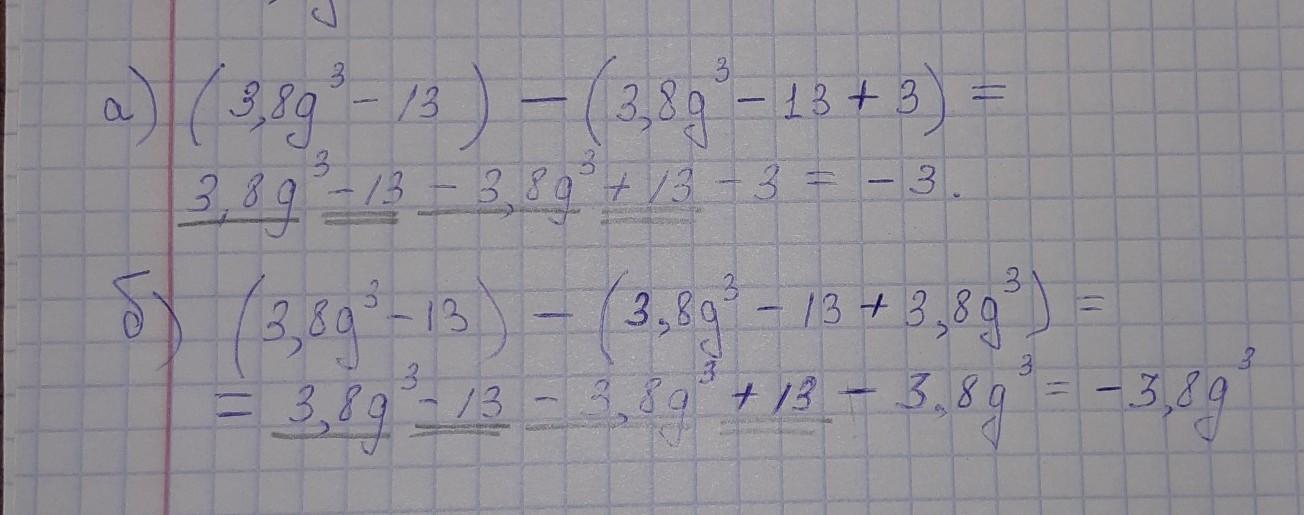 а) (3,8g³ - 13) - (3,8g³ - 13 + 3) =
3,8g³ - 13 - 3,8g³ + 13 - 3 = - 3.
б) (3,8g³ - 13) - (3,8g³ - 13 + 3,8g³) =
= 3,8g³ - 13 - 3,8g³ + 13 - 3,8g³ = - 3,8g³